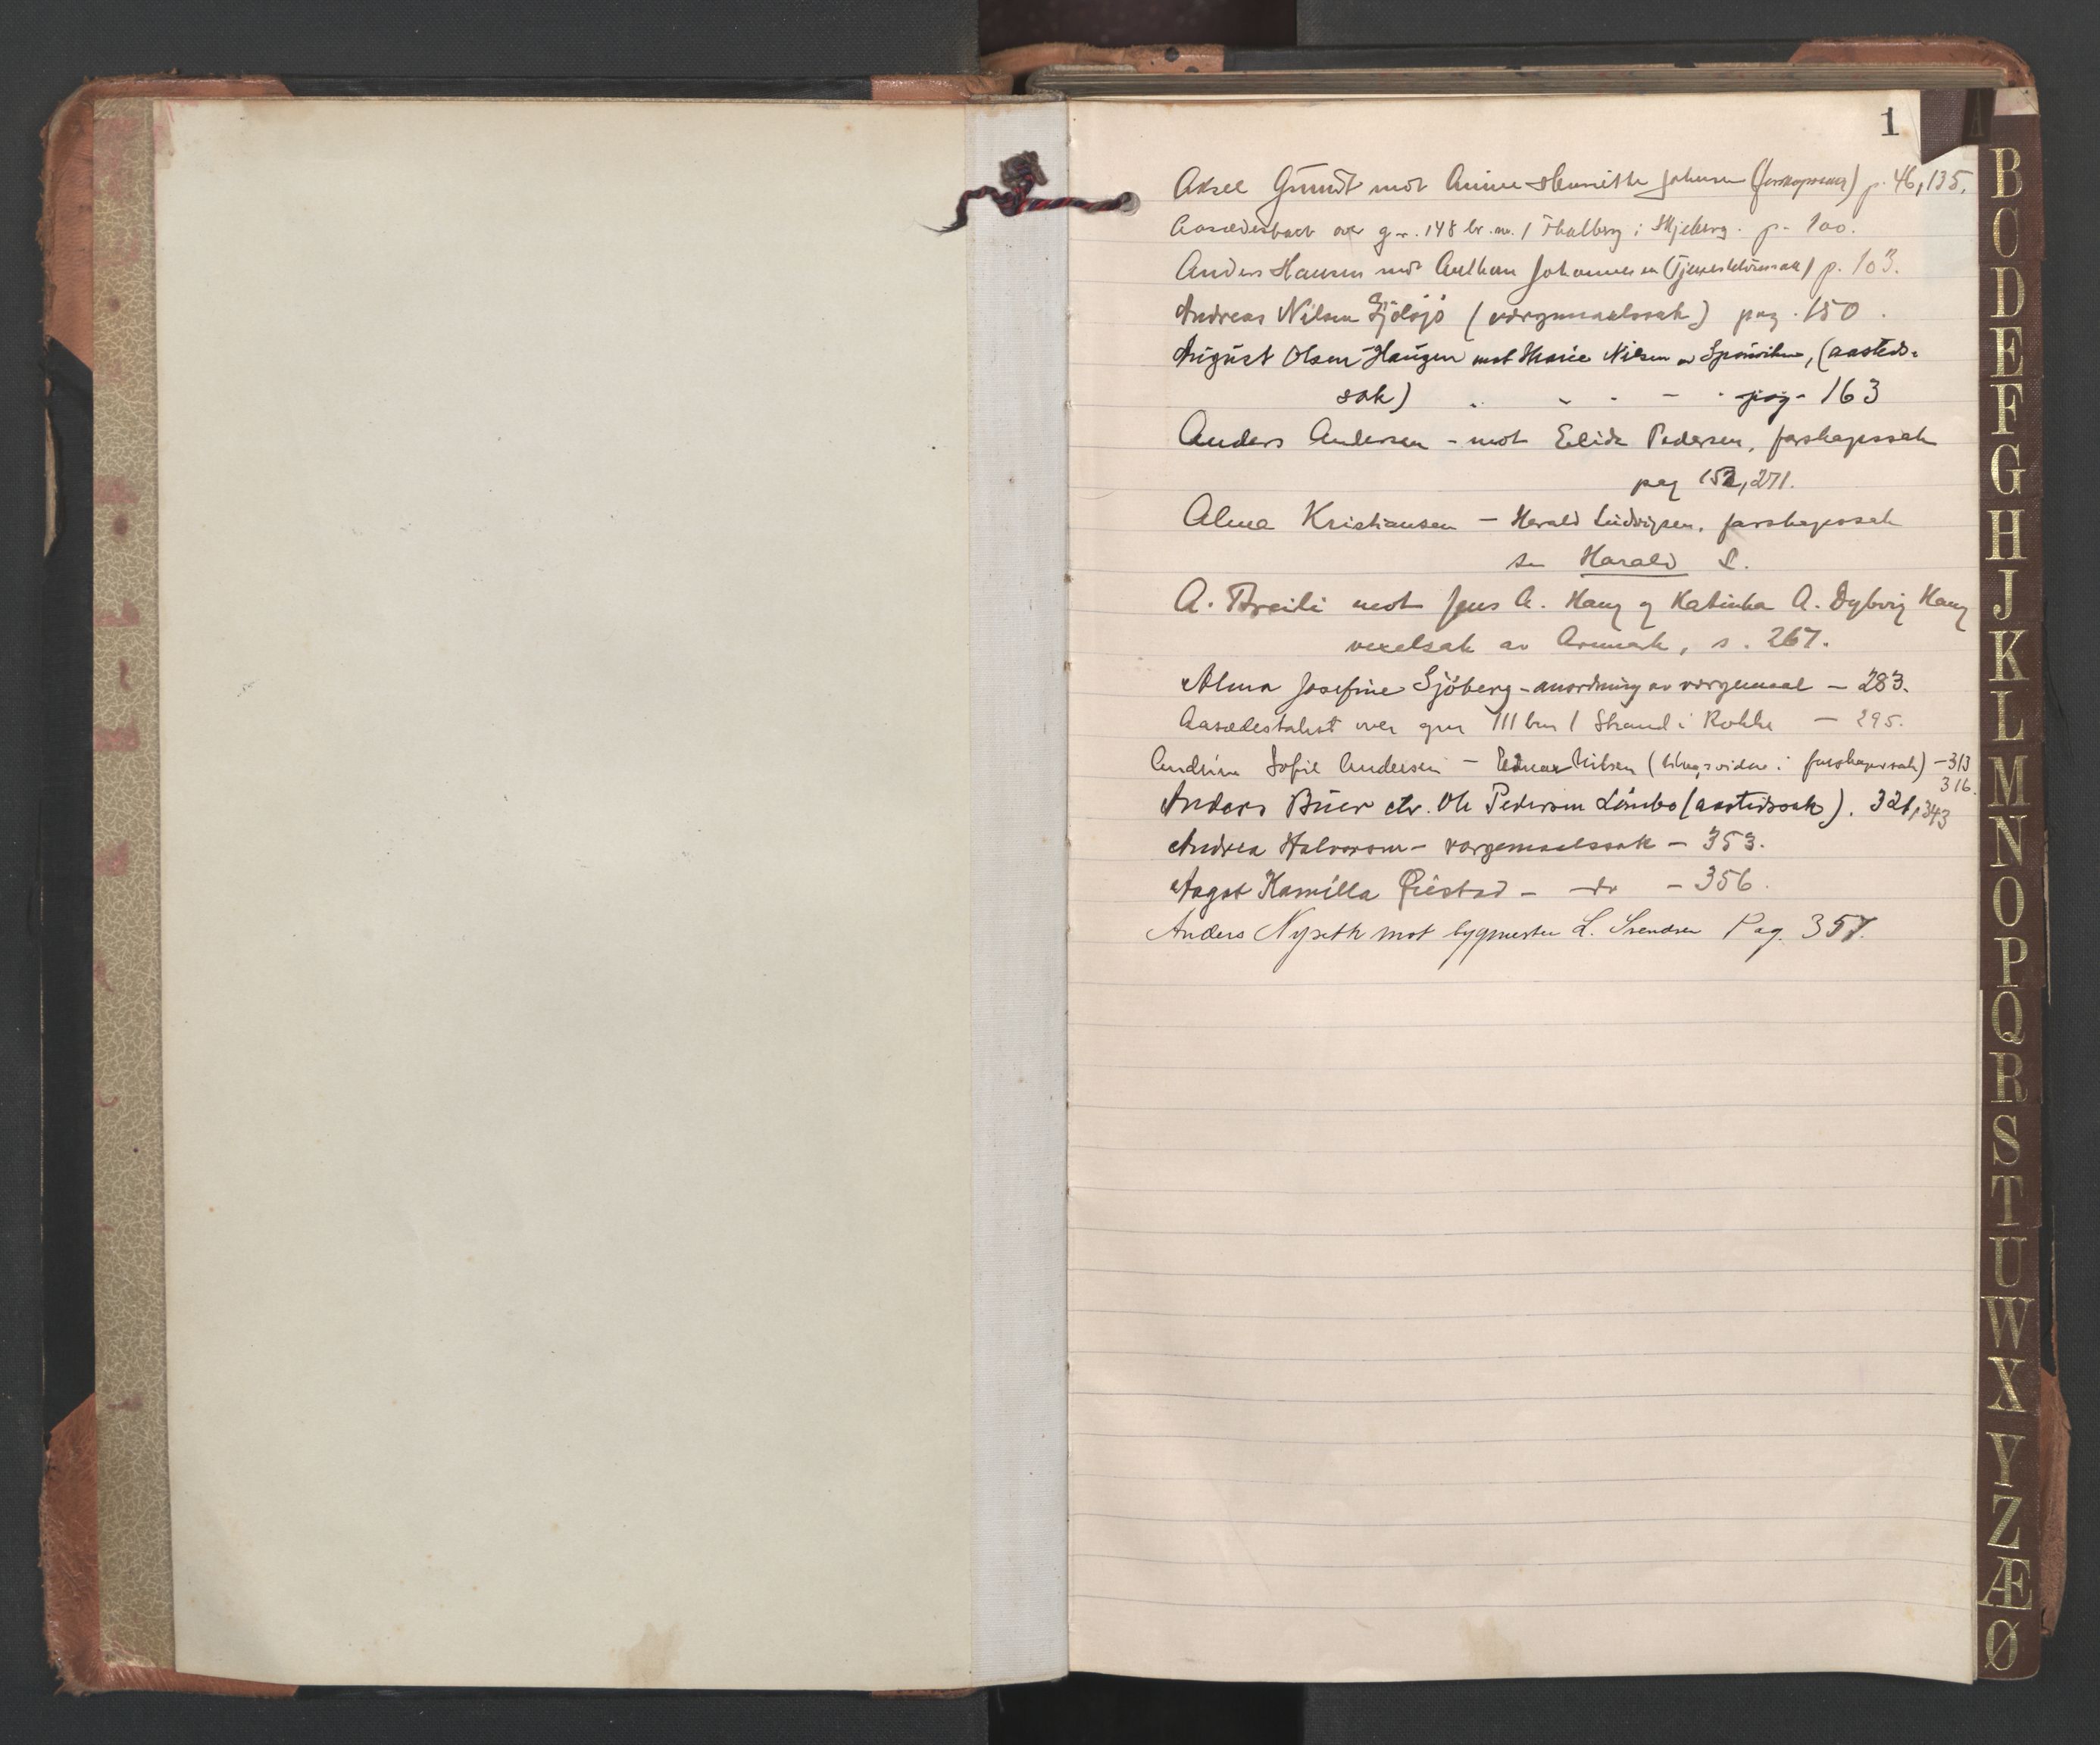 1
A
Aksel Grundt mot Anine Henriette Johnsen (farskapssak) p. 46, 135.
Aasædestakst over g.nr. 148 br. nr. 1 i Skjeberg. p. 100.
Anders Hansen mot Anthon Johannesen p. 103.
Andreas Nilsen (værgemaalssak) pag. 150.
August Olsen Haugen mot Marie Nilsen av Sponviken, (aasteds-
sak) " " - - - pag - 163
Anders Andersen - mot Elida Pedersen, farskapssak
pag 152, 271.
Alma Kristiansen - Harald Ludvigsen, farskapssak
se Harald L.
A. Breili mot Jens A. Haug og Katinka A. Dybvig Haug
vexelsak av Aremark, s. 267.
Alma Josefine Sjöberg - anordning av værgemaal - 283.
Aasædestakst over gnr 111 bnr 1 Strand i Rokke - 295.
Andrine Sofie Andersen - Nilsen ( i farskapssak) - 313
316.
Anders Buer ctr. Ole Pedersen Lömbo (aastedssak). 321, 343
Andrea Halvorsen - værgemaalssak - 353.
Aagot Kamilla Qvistad - do - 356.
Anders Nyseth mot bygmester L. Svendsen Pag. 357.
B
C
D
E
F
G
H
J
K
L
M
N
O
P
Q
R
S
T
U
W
X
Y
Z
Æ
Ø